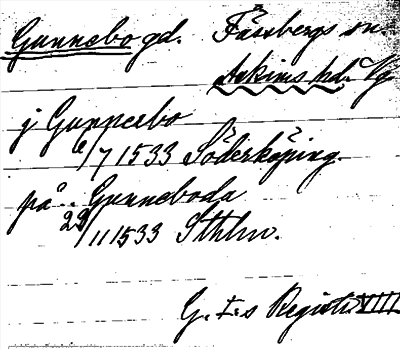 Gunnebo gd. Fässbergs sn.
Askims hd. Vg
j Gunnebo
6/7 1533 Söderköping.
på .. Gunneboda
22/11 1533 Sthlm.
G. I:s Registr. VIII